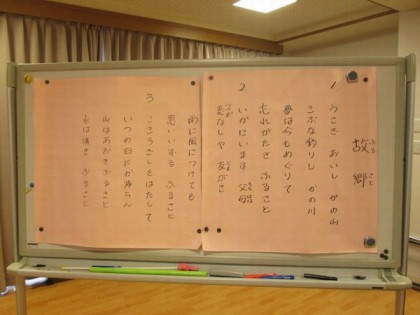 故郷
ふるさと
1. うさぎ おいし かの山
こぶな釣りし かの川
夢は今もめぐりて
忘れがたき ふるさと
2. いかにいます 父母
恙なしや 友がき
雨に風につけても
思いいずる ふるさと
3 こころざしをはたして
いつの日にか帰らん
山はあおき ふるさと
水は清き ふるさと